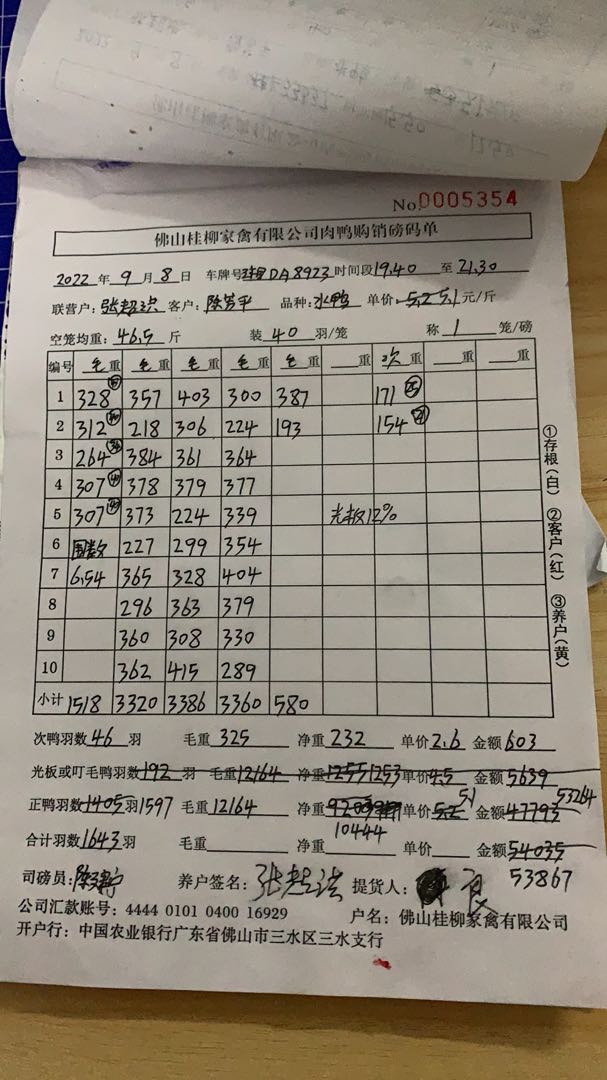 No.0005354
佛山桂柳家禽有限公司肉鸭购销磅码单
2022 年 9 月 8 日 车牌号 DA8923 时间段 19.40 至 21.30
联营户: 张超洪 客户: 品种: 水鸭 单价: 5.25.1 元/斤
空笼均重: 46.5 斤 装 40 羽/笼 称 1 笼/磅
编号 毛重 毛重 毛重 毛重 毛重 重 次重 重 重
1 328 357 403 300 387 171 25
2 312 218 306 224 193 154 21
3 264 384 361 364
4 307 378 379 377
5 307 373 224 339 光板12%
6 围数 227 299 354
7 6.54 365 328 404
8 296 363 379
9 360 308 330
10 362 415 289
小计 1518 3320 3386 3360 580
次鸭羽数 46 羽 毛重 325 净重 232 单价 2.6 金额 603
光板或叮毛鸭羽数 192 羽 毛重 12164 净重 1255 1253 单价 4.5 金额 5639
正鸭羽数 1405 羽 1597 毛重 12164 净重 10444 单价 5.2 5.1 金额 47793 53264
合计羽数 1643 羽 毛重 净重 单价 金额 54035
53867
司磅员: 养户签名: 张超洪 提货人:
公司汇款账号: 4444 0101 0400 16929 户名: 佛山桂柳家禽有限公司
开户行: 中国农业银行广东省佛山市三水区三水支行
①存根(白) ②客户(红) ③养户(黄)